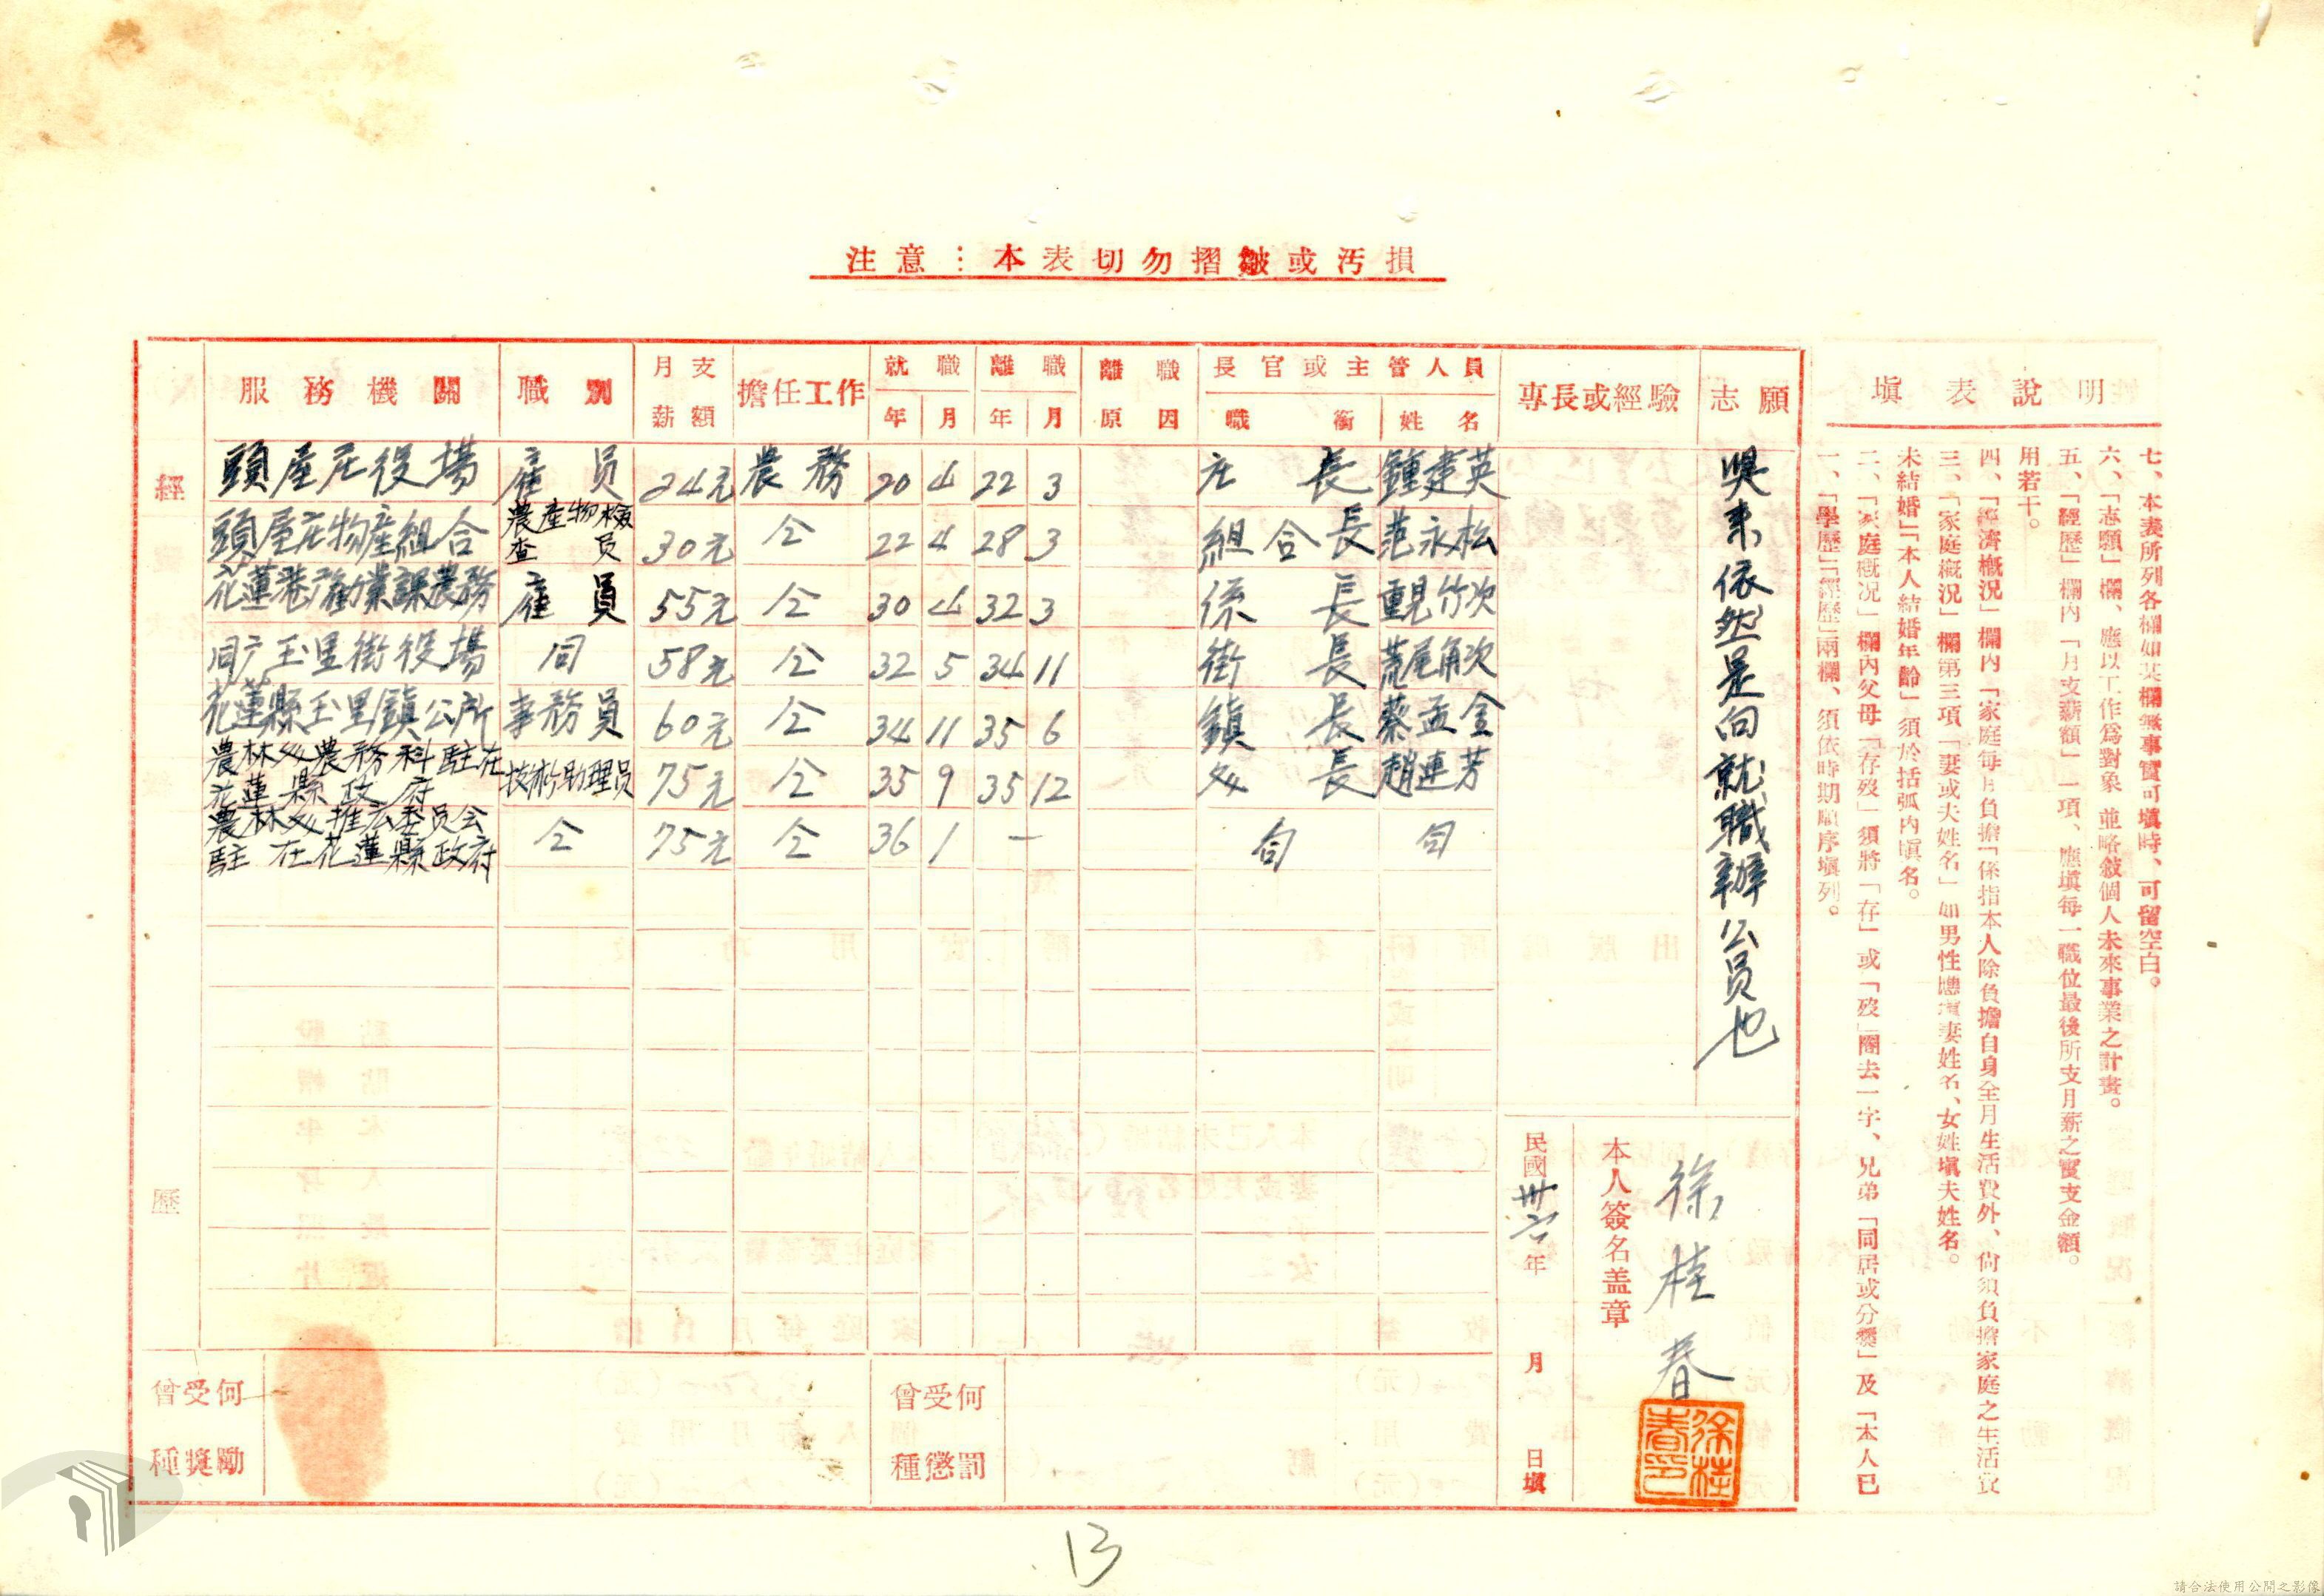 注意：本表切勿摺皺或汚損
經歷
服務機關 職別 月支薪額 擔任工作 就職年月 離職年月 離職原因 長官或主管人員職銜 姓名 專長或經驗 志願
頭屋庄役場 雇員 24元 農務 20 4 22 3 庄長 鍾建英
頭屋庄物產組合 農產物檢查員 30元 仝 22 4 28 3 組合長 范永松
花蓮港庁勧業課農務 雇員 55元 仝 30 4 32 3 係長 重見竹次
同庁玉里街役場 同 58元 仝 32 5 34 11 街長 荒尾角次
花蓮縣玉里鎮公所 事務員 60元 仝 34 11 35 6 鎮長 蔡孟金
農林处農務科駐在花蓮縣政府 技術助理员 75元 仝 35 9 35 12 处長 趙連芳
農林处推広委员会駐在花蓮縣政府 仝 75元 仝 36 1 一
依然是向就職辦公員也
曾受何種獎勵
曾受何種懲罰
本人簽名盖章
徐桂春
徐桂春印
民國卅六年 月 日塡
塡表說明
一、「學歷」「經歷」兩欄、須依時期順序塡列。
二、「家庭概况」欄內父母「存歿」須將「存」或「歿」圈去一字、兄弟「同居或分爨」及「本人已
未結婚」「本人結婚年齡」須於括弧內塡名。
三、「家庭概況」欄第三項「妻或夫姓名」如男性應塡妻姓名、女姓塡夫姓名。
四、「經濟概況」欄內「家庭每月負擔」係指本人除負擔自身全月生活費外、尙須負擔家庭之生活費
用若干。
五、「經歷」欄內「月支薪額」一項、應塡每一職位最後所支月薪之實支金額。
六、「志願」欄、應以工作爲對象 並略敍個人未來事業之計畫。
七、本表所列各欄如某欄無事實可塡時、可留空白。
13
請合法使用公開之影像